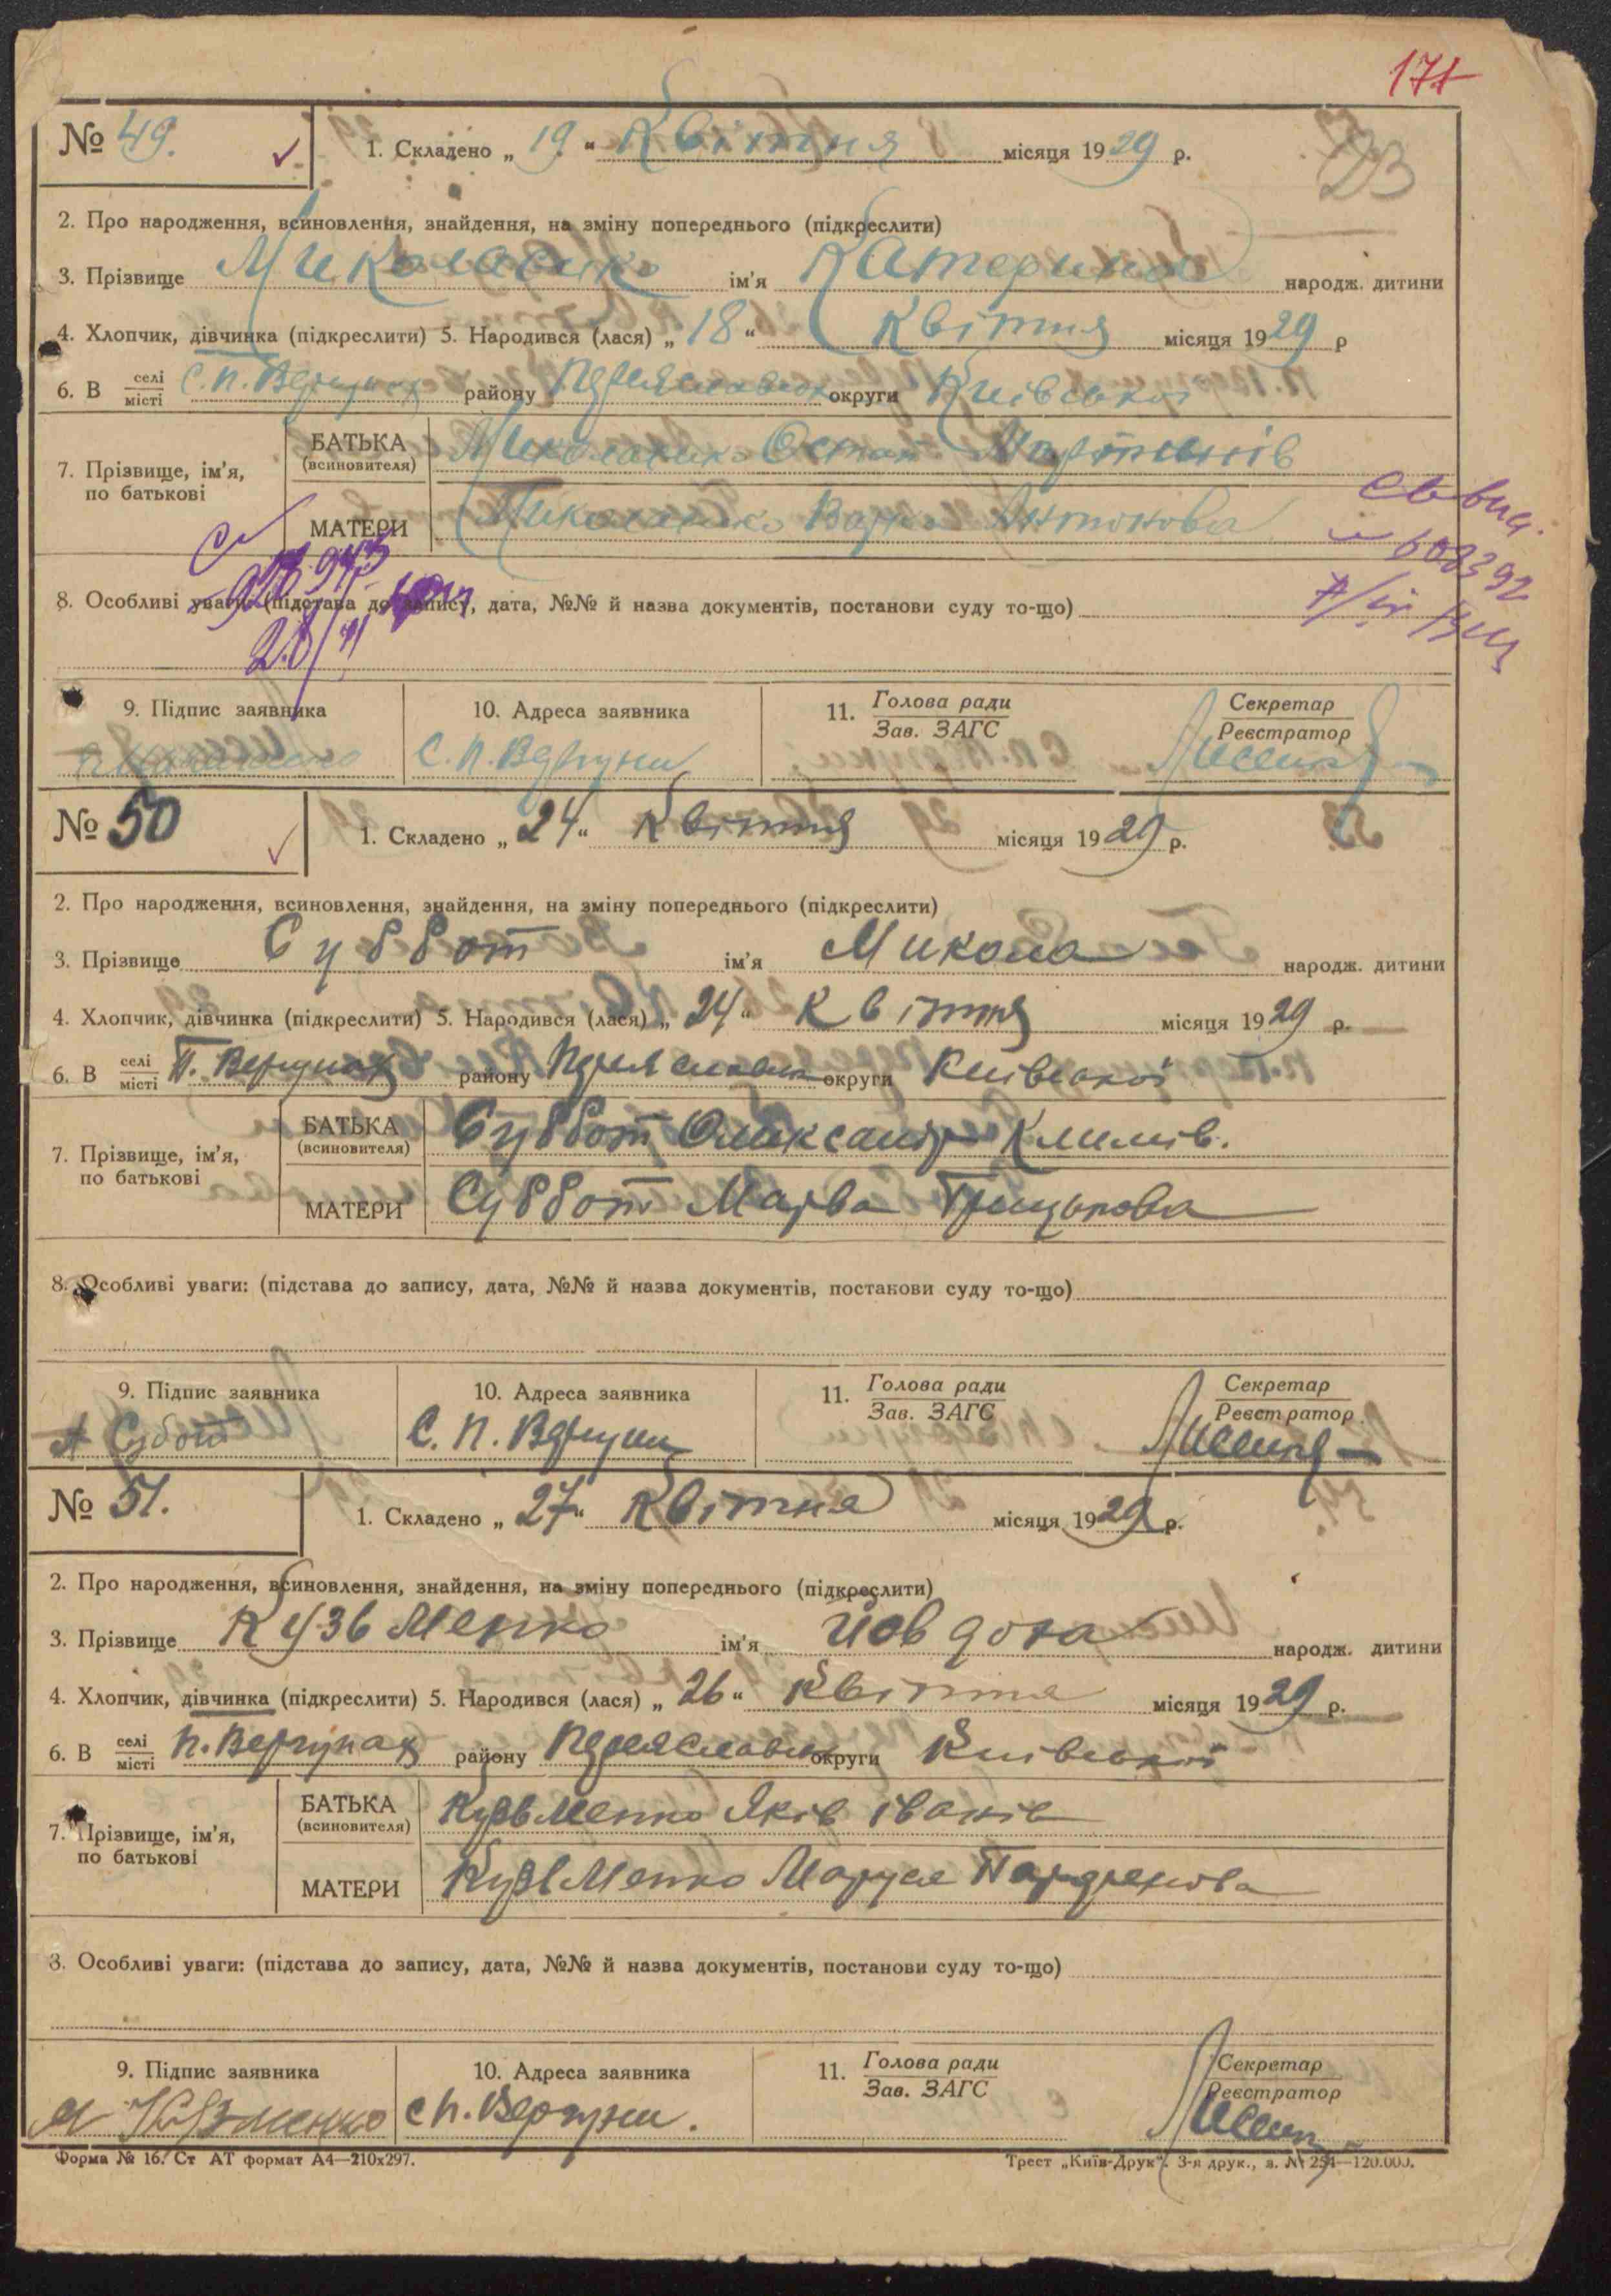 171
№ 49.
1. Складено „ 19 “ Квітня місяця 1929 р.
2. Про народження, всиновлення, знайдення, на зміну попереднього (підкреслити)
3. Прізвище Миколаєнко ім'я Катерина народж. дитини
4. Хлопчик, дівчинка (підкреслити) 5. Народився (лася) „ 18 “ Квітня місяця 1929 р
6. В селі місті С.П. Вергунах району Переяславськ округи Київської
7. Прізвище, ім'я, по батькові
БАТЬКА (всиновителя) Миколаєнко Остап Мартинів
МАТЕРИ Миколаєнко Варка Антонова
8. Особливі уваги: (підстава до запису, дата, №№ й назва документів, постанови суду то-що)
9. Підпис заявника
10. Адреса заявника
11. Голова ради Зав. ЗАГС
Секретар Реєстратор
С.П. Вергуни
№ 50
1. Складено „ 24 “ Квітня місяця 1929 р.
2. Про народження, всиновлення, знайдення, на зміну попереднього (підкреслити)
3. Прізвище Суббот ім'я Микола народж. дитини
4. Хлопчик, дівчинка (підкреслити) 5. Народився (лася) „ 24 “ Квітня місяця 1929 р.
6. В селі місті П. Вергунах району Переяславськ округи Київської
7. Прізвище, ім'я, по батькові
БАТЬКА (всиновителя) Суббот Олександр Климів.
МАТЕРИ Суббот Марва Грицькова
8. Особливі уваги: (підстава до запису, дата, №№ й назва документів, постакови суду то-що)
9. Підпис заявника
10. Адреса заявника
11. Голова ради Зав. ЗАГС
Секретар Реєстратор
А Субот
С. П. Вергуни
№ 51.
1. Складено „ 27 “ Квітня місяця 1929 р.
2. Про народження, всиновлення, знайдення, на зміну попереднього (підкреслити)
3. Прізвище Кузьменко ім'я Йовдоха народж. дитини
4. Хлопчик, дівчинка (підкреслити) 5. Народився (лася) „ 26 “ Квітня місяця 1929 р.
6. В селі місті П. Вергунах району Переяславськ округи Київської
7. Прізвище, ім'я, по батькові
БАТЬКА (всиновителя) Кузьменко Яків Іванів
МАТЕРИ Кузьменко Маруся
8. Особливі уваги: (підстава до запису, дата, №№ й назва документів, постанови суду то-що)
9. Підпис заявника
10. Адреса заявника
11. Голова ради Зав. ЗАГС
Секретар Реєстратор
Я Кузменко
с п. Вергуни.
Форма № 16. Ст АТ формат А4—210х297.
Трест „Київ-Друк“. 3-я друк., з. № 254—120.000.